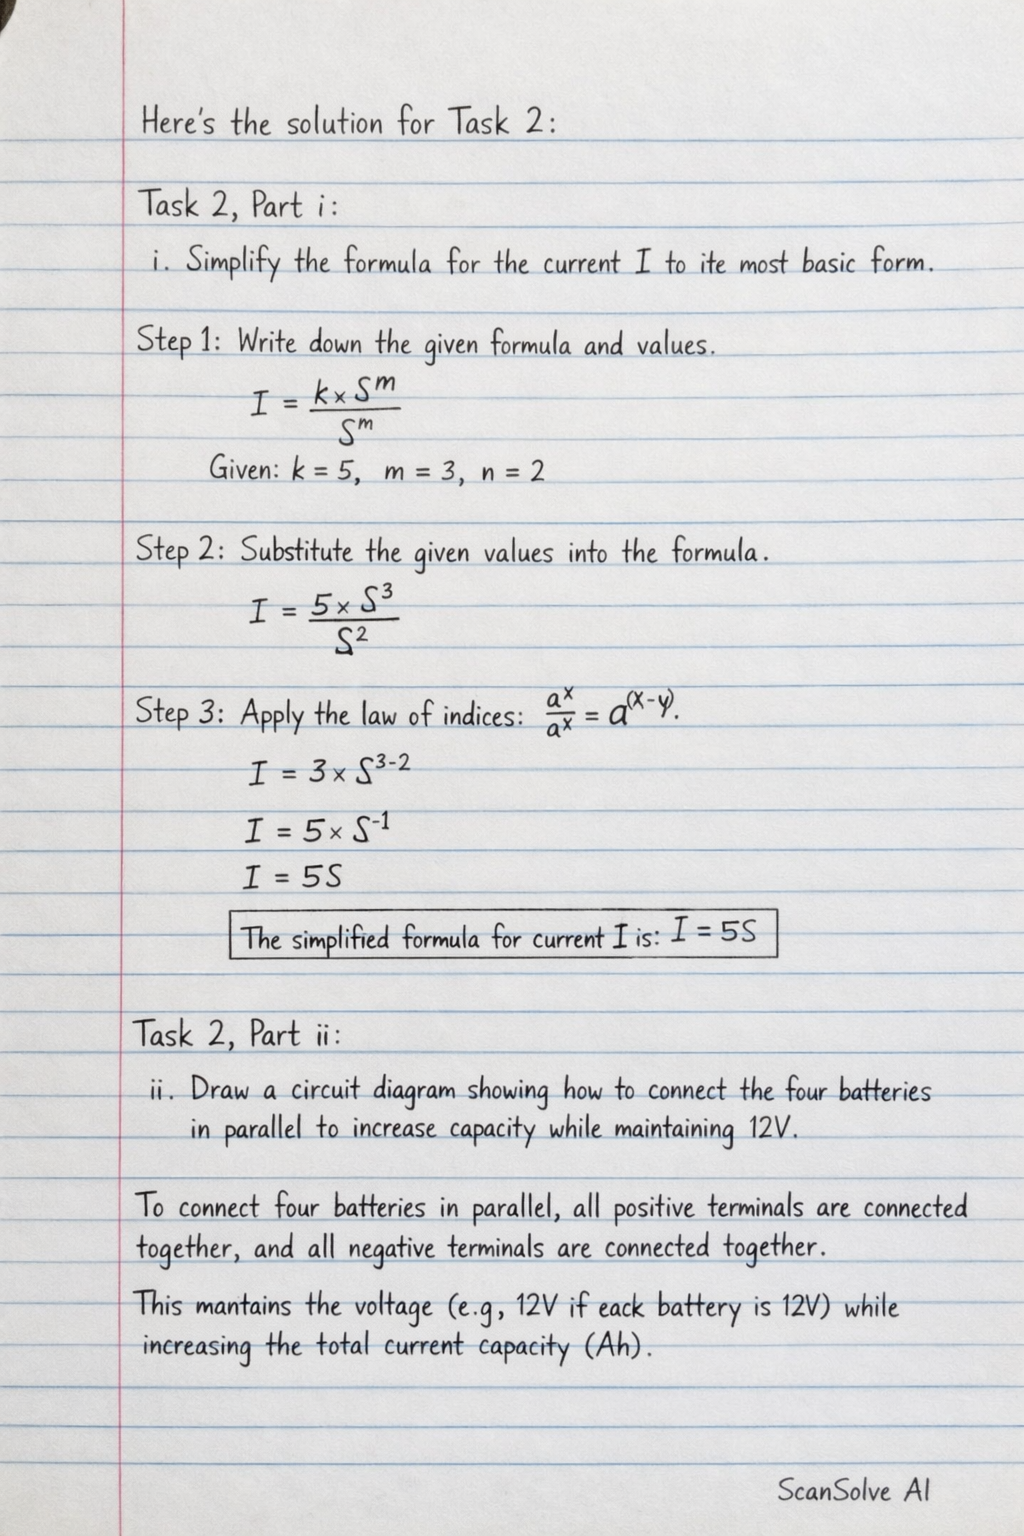 Here's the solution for Task 2:
Task 2, Part i:
i. Simplify the formula for the current I to ite most basic form.
Step 1: Write down the given formula and values.
I = \frac{k × S^m}{S^m}
Given: k = 5, m = 3, n = 2
Step 2: Substitute the given values into the formula.
I = \frac{5 × S^3}{S^2}
Step 3: Apply the law of indices: \frac{a^x}{a^x} = a^{(x-y)}.
I = 3 × S^{3-2}
I = 5 × S^{-1}
I = 5S
The simplified formula for current I is: I = 5S
Task 2, Part ii:
ii. Draw a circuit diagram showing how to connect the four batteries
in parallel to increase capacity while maintaining 12V.
To connect four batteries in parallel, all positive terminals are connected
together, and all negative terminals are connected together.
This mantains the voltage (e.g, 12V if eack battery is 12V) while
increasing the total current capacity (Ah).
ScanSolve AI